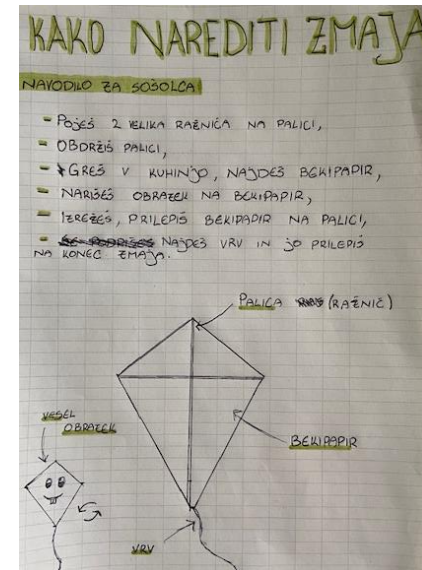 KAKO NAREDITI ZMAJA
NAVODILO ZA SOŠOLCA
- POJEŠ 2 VELIKA RAŽNIĆA NA PALICI,
- OBDRŽIŠ PALICI,
- GREŠ V KUHINJO, NAJDEŠ BEKIPAPIR,
- NARIŠEŠ OBRAZEK NA BEKIPAPIR,
- IZREŽEŠ, PRILEPIŠ BEKIPAPIR NA PALICI,
- NAJDEŠ VRV IN JO PRILEPIŠ
NA KONEC ZMAJA.
PALICA (RAŽNIČ)
VESEL
OBRAZEK
BEKIPAPIR
VRV